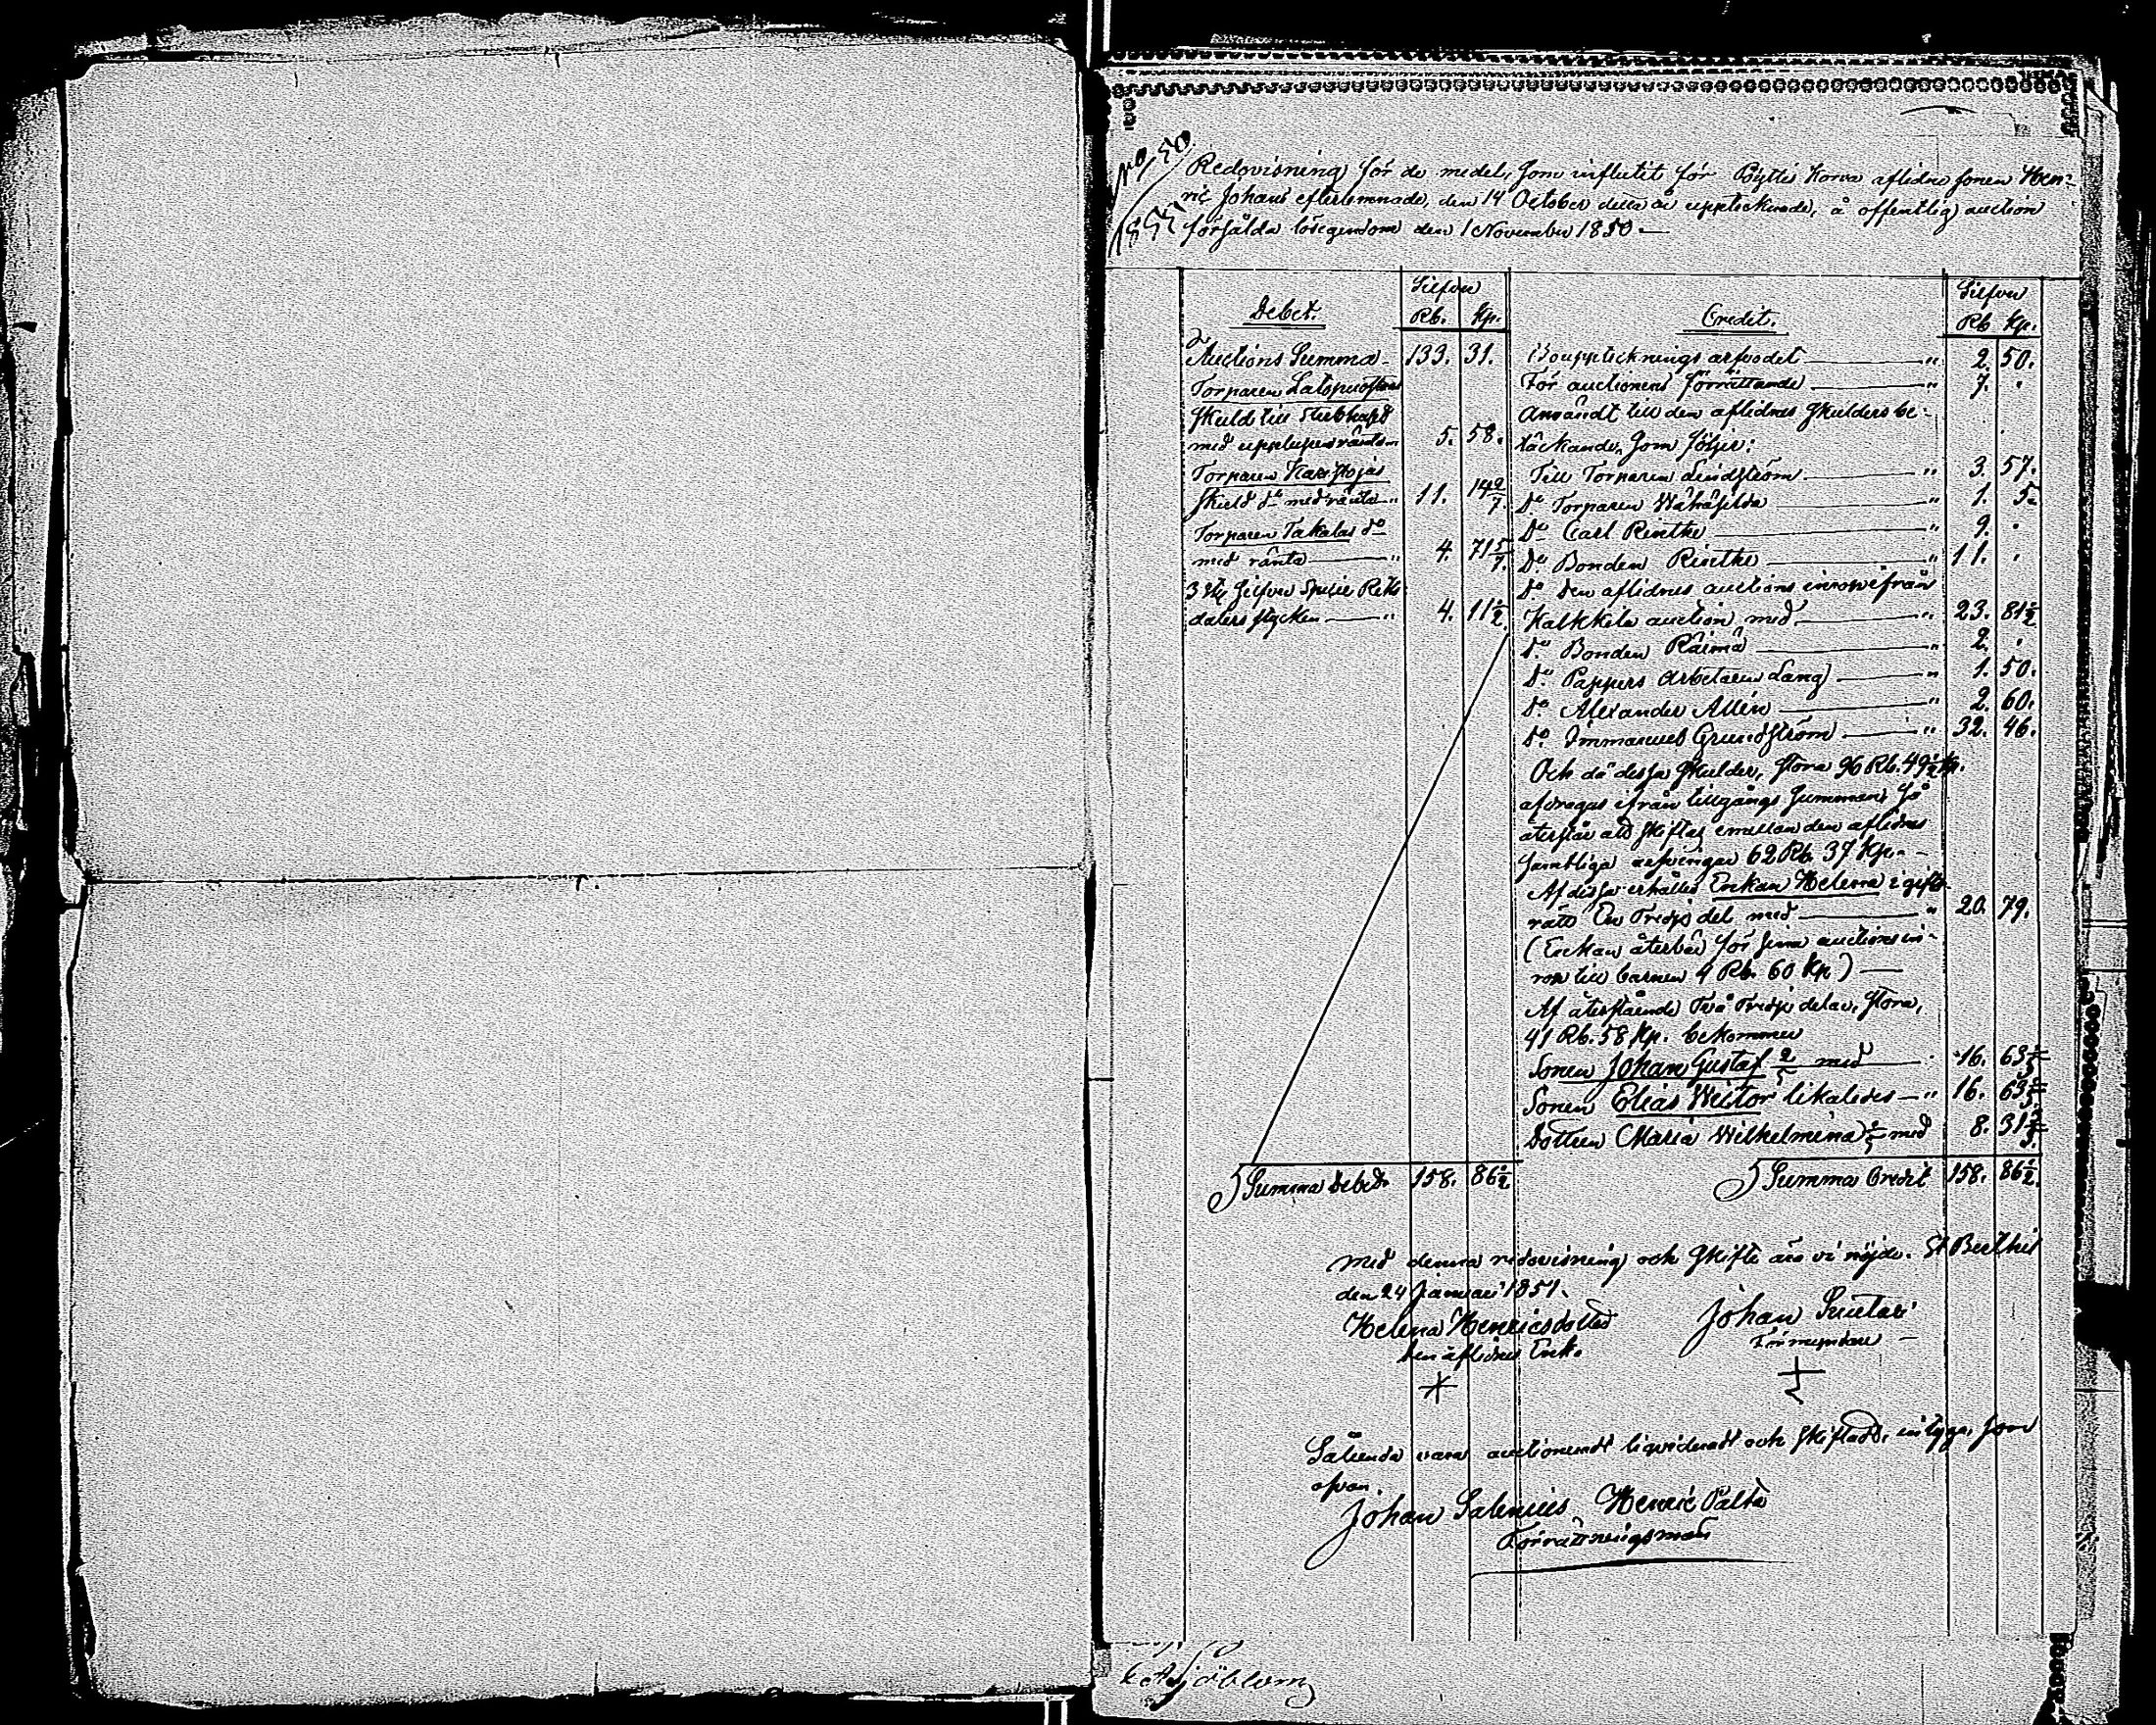 No 50
1851
Redovisning för de medel, som influtit för Byttis Korva aflidne sonen Hen-
ric Johans efterlemnade, den 14 October detta år upptecknade, å offentlig auction
försålda lösegendom den 1 November 1850.
Debet.
Silfver
Rb. Kp.
Auctions Summa 133. 31.
Torparen
skuld till sterbhuset
med upplupen ränta 5. 58.
Torparen
skuld do med ränta " 11. 14 2/7.
Torparen Takalas do
med ränta " 4. 71 5/7.
3 st. Silfver Specie Riks
dalers stycken " 4. 11 1/2.
Summa Debet. 158. 86 1/2
Credit.
Silfver
Rb Kp.
Bouppteknings arfvodet " 2. 50.
För auctionens förrättande " 7. .
Användt till den aflidnes skulders be-
täckande, som följer:
Till Torparen Lindström " 3. 57.
Do Torparen " 1. 5.
Do Carl Rinthe " 9. .
Do Bonden Rinthe " 11. .
Do den aflidnes auctions inrop ifrån
Kalkkila auction med " 23. 81 1/2
Do Bonden Räimä " 2. .
Do Pappers Arbetaren Lang " 1. 50.
Do Alexander Allén " 2. 60.
Do Immanuel Grundström " 32. 46.
Och då dessa skulder, stora 96 Rb. 49 1/2 kp.
afdragas ifrån tillgångs summan, så
återstår att skiftas emellan den aflidnes
samtliga arfvingar 62 Rb. 37 Kp.
Af dessa erhåller Enkan Helena i gifto-
rätt En Tredje del med " 20. 79.
(Enkan återbär för sina auctions in-
rop till barnen 4 Rb. 60 Kp)
Af återstående Två Tredje delar, stora,
41 Rb. 58 Kp. bekommer
Sonen Johan Gustaf 2/5 med 16. 63 1/5
Sonen Elias Wictor likaledes " 16. 63 1/5
Dottren Maria Wilhelmina 1/5 med 8. 31 3/5
Summa Credit 158. 86 1/2.
Med denna redovisning och skifte äro vi nöjde. St Berthel
den 24 Januari 1851.
Helena Henricsdotter
den aflidnes Enka
Johan
Förmyndare
Sålunda vara auctioneradt liqvideradt och skiftadt, intyga, som
ofvan.
Johan Salenius Henric Palta
Förrättningsmän
Sjöblom